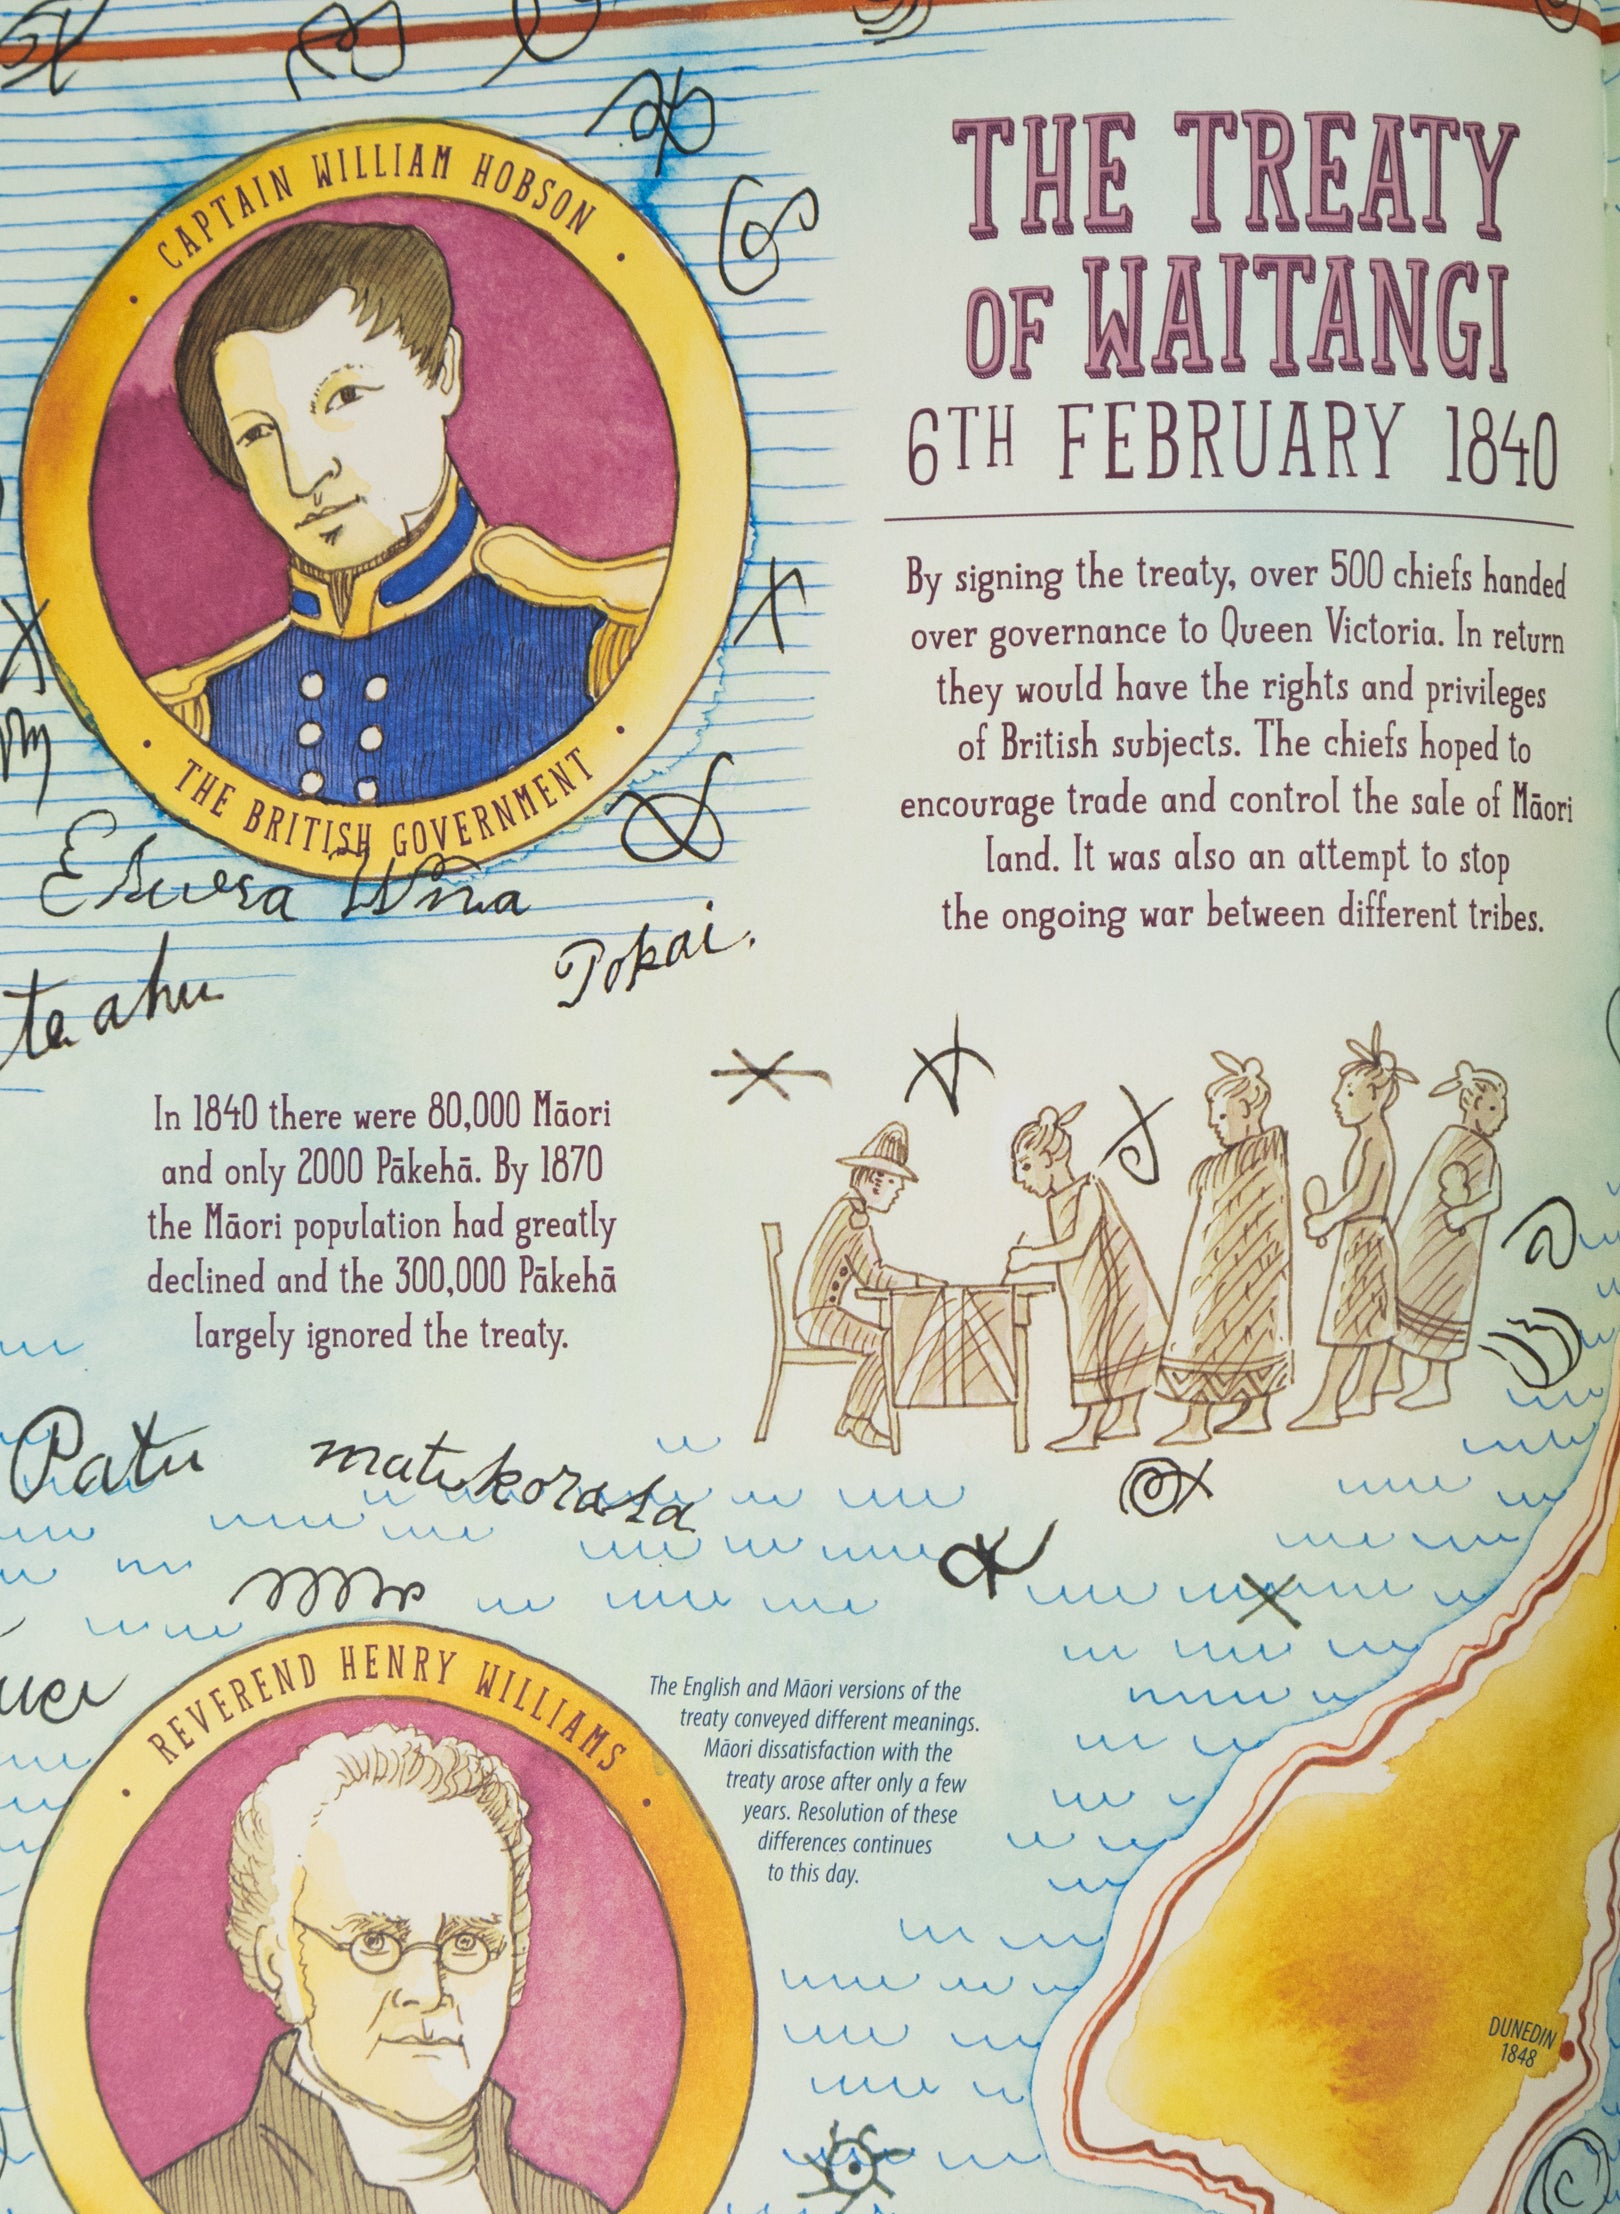 CAPTAIN WILLIAM HOBSON
THE BRITISH GOVERNMENT
THE TREATY
OF WAITANGI
6TH FEBRUARY 1840
By signing the treaty, over 500 chiefs handed
over governance to Queen Victoria. In return
they would have the rights and privileges
of British subjects. The chiefs hoped to
encourage trade and control the sale of Māori
land. It was also an attempt to stop
the ongoing war between different tribes.
te ahu
Tokai.
In 1840 there were 80,000 Māori
and only 2000 Pākehā. By 1870
the Māori population had greatly
declined and the 300,000 Pākehā
largely ignored the treaty.
Patu
REVEREND HENRY WILLIAMS
The English and Māori versions of the
treaty conveyed different meanings.
Māori dissatisfaction with the
treaty arose after only a few
years. Resolution of these
differences continues
to this day.
DUNEDIN
1848